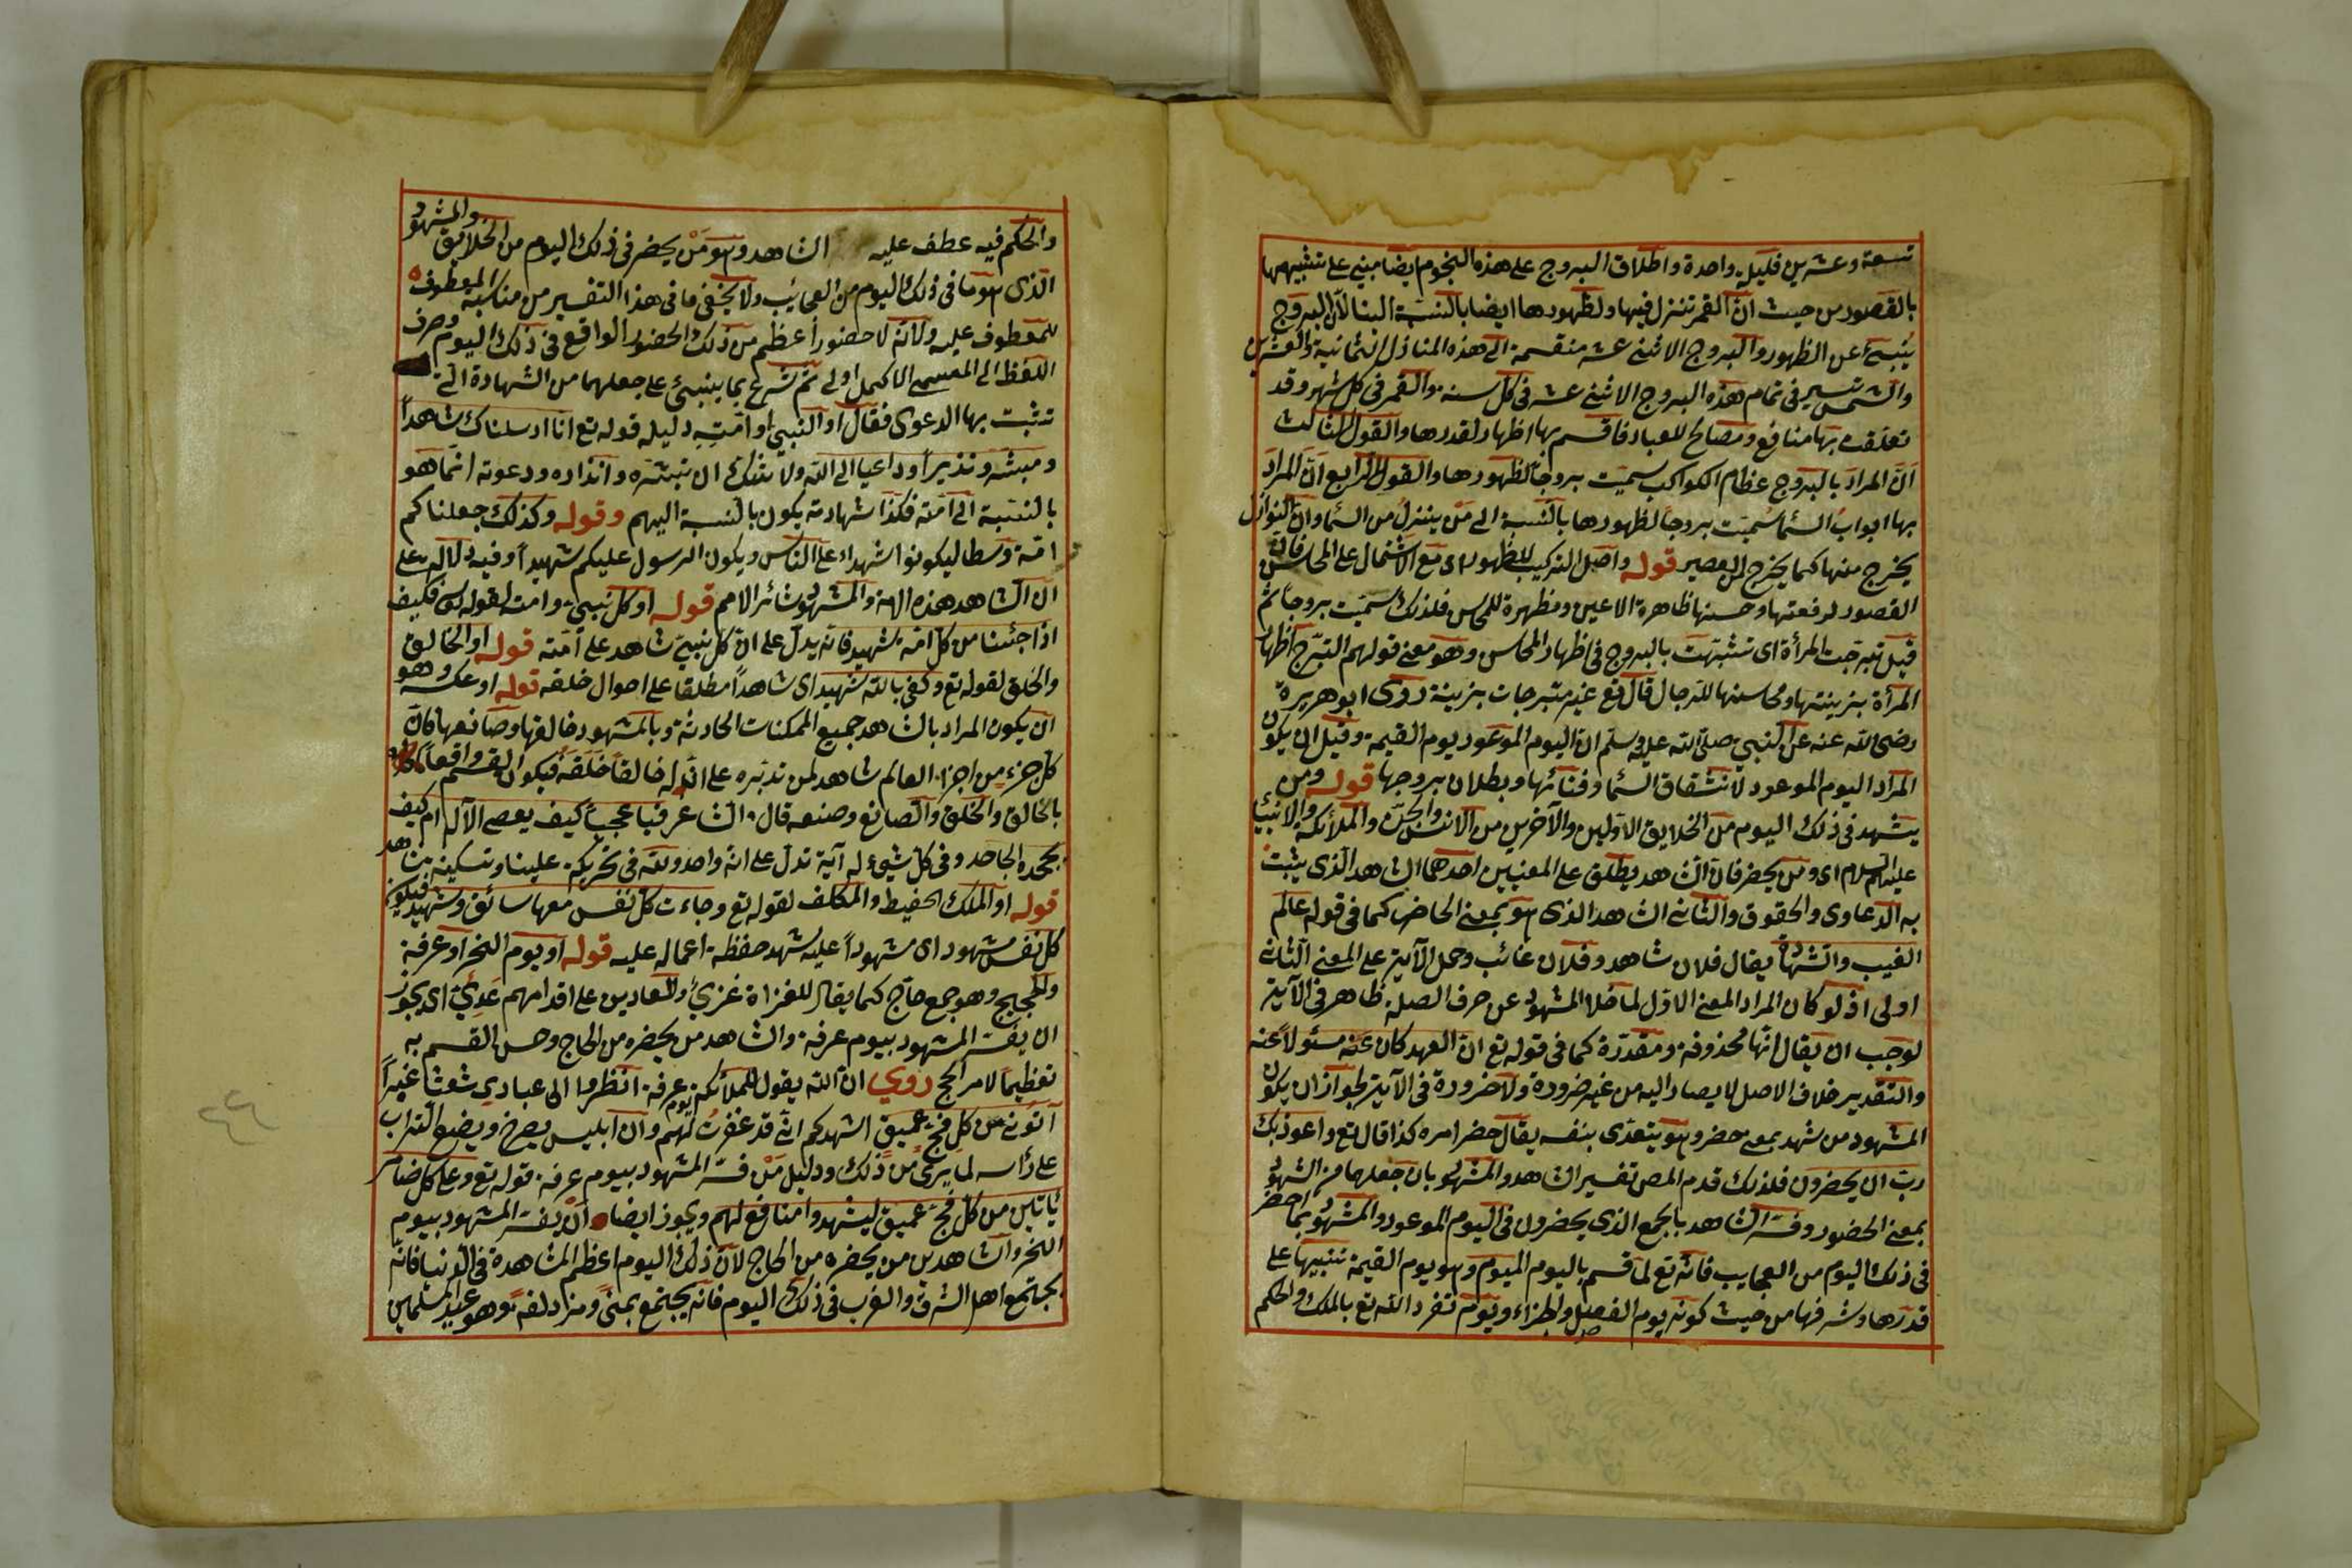 تسعة وعشرين فليلة واحدة واطلاق البروج على هذه النجوم ايضا مبني على تشبيهها
بالقصور من حيث ان القمر تنزل فيها ولظهورها ايضا بالنسبة الينا لان البروج
ينبئ عن الظهور والبروج الاثنى عشر منقسمة الى هذه المنازل الثمانية والعشرين
والشمس تسير فى تمام هذه البروج الاثنى عشر فى كل سنة والقمر فى كل شهر وقد
تعلقت بها منافع ومصالح للعباد فاقسم بها اظهارا لقدرها والقول الثالث
ان المراد بالبروج عظام الكواكب سميت بروجا لظهورها والقول الرابع ان المراد
بها ابواب السماء سميت بروجا لظهورها بالنسبة الى من ينزل من السماء وان النوازل
يخرج منها كما يخرج من القصير قوله واصل التركيب للظهور اى مع الاشتمال على المحاسن فان
القصور لرفعتها وحسنها ظاهرة الاعين ومظهرة للمحاسن فلذلك سميت بروجا ثم
قيل تبرجت المرأة اى تشبهت بالبروج فى اظهار المحاسن وهو معنى قولهم التبرج اظهار
المرأة بزينتها ومحاسنها للرجال قال تع غير متبرجات بزينة روى ابو هريرة
رضى الله عنه عن النبي صلى الله عليه وسلم ان اليوم الموعود يوم القيمة وقيل ان يكون
المراد اليوم الموعود لانشقاق السماء وفنائها وبطلان بروجها قوله ومن
يشهد فى ذلك اليوم من الخلايق الاولين والآخرين من الانس والجن والملائكة والانبياء
عليهم السلام اى ومن يحضر فان الشاهد يطلق على المعنيين احدهما الشاهد الذى يثبت
به الدعاوى والحقوق والثانى الشاهد الذى هو بمعنى الحاضر كما فى قوله عالم
الغيب والشهادة يقال فلان شاهد وفلان غائب وحمل الآية على المعنى الثانى
اولى اذ لو كان المراد المعنى الاول لما خلا المشهود عن حرف الصلة ظاهر فى الآية
لوجب ان يقال انها محذوفة ومقدرة كما فى قوله تع ان العهد كان عنه مسئولا عنه
والتقدير خلاف الاصل لا يصار اليه من غير ضرورة ولا ضرورة فى الآية لجواز ان يكون
المشهود من شهد بمعنى حضر وهو يتعدى بنفسه يقال حضر امره كذا قال تع واعوذ بك
رب ان يحضرون فلذلك قدم المص تفسير الشاهد والمشهود بان جعلهما من الشهود
بمعنى الحضور وفسر الشاهد بالجمع الذى يحضرون فى اليوم الموعود والمشهود بما احضر
فى ذلك اليوم من العجايب فانه تع لما قسم باليوم وهو يوم القيمة تنبيها على
قدرها وشرفها من حيث كونه يوم الفصل والجزاء ويوم تفرد الله تع بالملك والحكم
والحكم فيه عطف عليه الشاهد وهو من يحضر فى ذلك اليوم من الخلايق والمشهود
الذى هو ما فى ذلك اليوم من العجائب ولا يخفى ما فى هذا التفسير من مناسبة المعطوف
للمعطوف عليه ولانه لا حضور اعظم من ذلك الحضور الواقع فى ذلك اليوم وصرف
اللفظ الى المسمى الاكمل اولى ثم شرع بما ينبئ على جعلهما من الشهادة التى
تثبت بها الدعوى فقال او النبي او امته دليله قوله تع انا ارسلناك شاهدا
ومبشرا ونذيرا وداعيا الى الله ولا شك ان تبشره وانذاره ودعوته انما هو
بالنسبة الى امته فكذا شهادته يكون بالنسبة اليهم وقوله وكذلك جعلناكم
امة وسطا ليكونوا شهداء على الناس ويكون الرسول عليكم شهيدا وفيه دلالة على
ان الشاهد هذه الامة والمشهود سائر الامم قوله او كل نبي وامته لقوله تع فكيف
اذا جئنا من كل امة بشهيد فانه يدل على ان كل نبي شاهد على امته قوله او الخالق
والخلق لقوله تع وكفى بالله شهيدا اى شاهدا مطلقا على احوال خلقه قوله او عكسه وهو
ان يكون المراد بالشاهد جميع الممكنات الحادثة وبالمشهود خالقها وصانعها فان
كل جزء من اجزاء العالم شاهد لمن تدبره على ان له خالقا خلقه فيكون القسم واقعا
بالخالق والخلق والصانع وصنعه قال الشاعر فيا عجبا كيف يعصى الآله ام كيف
يجحده الجاحد وفى كل شيء له آية تدل على انه واحد ولله فى تحريكة علينا وتسكينة شاهد
قوله او الملك الحفيظ والمكلف لقوله تع وجاءت كل نفس معها سائق وشهيد فيكون
كل نفس مشهود اى مشهودا عليه شهد حفظة اعماله عليه قوله او يوم النحر او عرفة
والحجيج وهو جمع حاج كما يقال للغزاة غزي وللعادين على اقدامهم عدي اى يجوز
ان يفسر المشهود بيوم عرفة والشاهد من يحضره من الحاج وحسن القسم به
تعظيما لامر الحج روي ان الله يقول للملائكة يوم عرفة انظروا الى عبادي شعثا غبرا
آتونى من كل فج عميق اشهدكم انى قد غفرت لهم وان ابليس يصرخ ويضع التراب
على رأسه لما يرى من ذلك ودليل من فسر المشهود بيوم عرفة قوله تع وعلى كل ضامر
ياتين من كل فج عميق ليشهدوا منافع لهم ويجوز ايضا ان يفسر المشهود بيوم
النحر والشاهد بمن يحضره من الحاج لان ذلك اليوم اعظم المشاهدة فى الدنيا فانه
يجتمع اهل الشرق والغرب فى ذلك اليوم فانه يجتمع بمنى ومزدلفة وهو عيد المسلمين